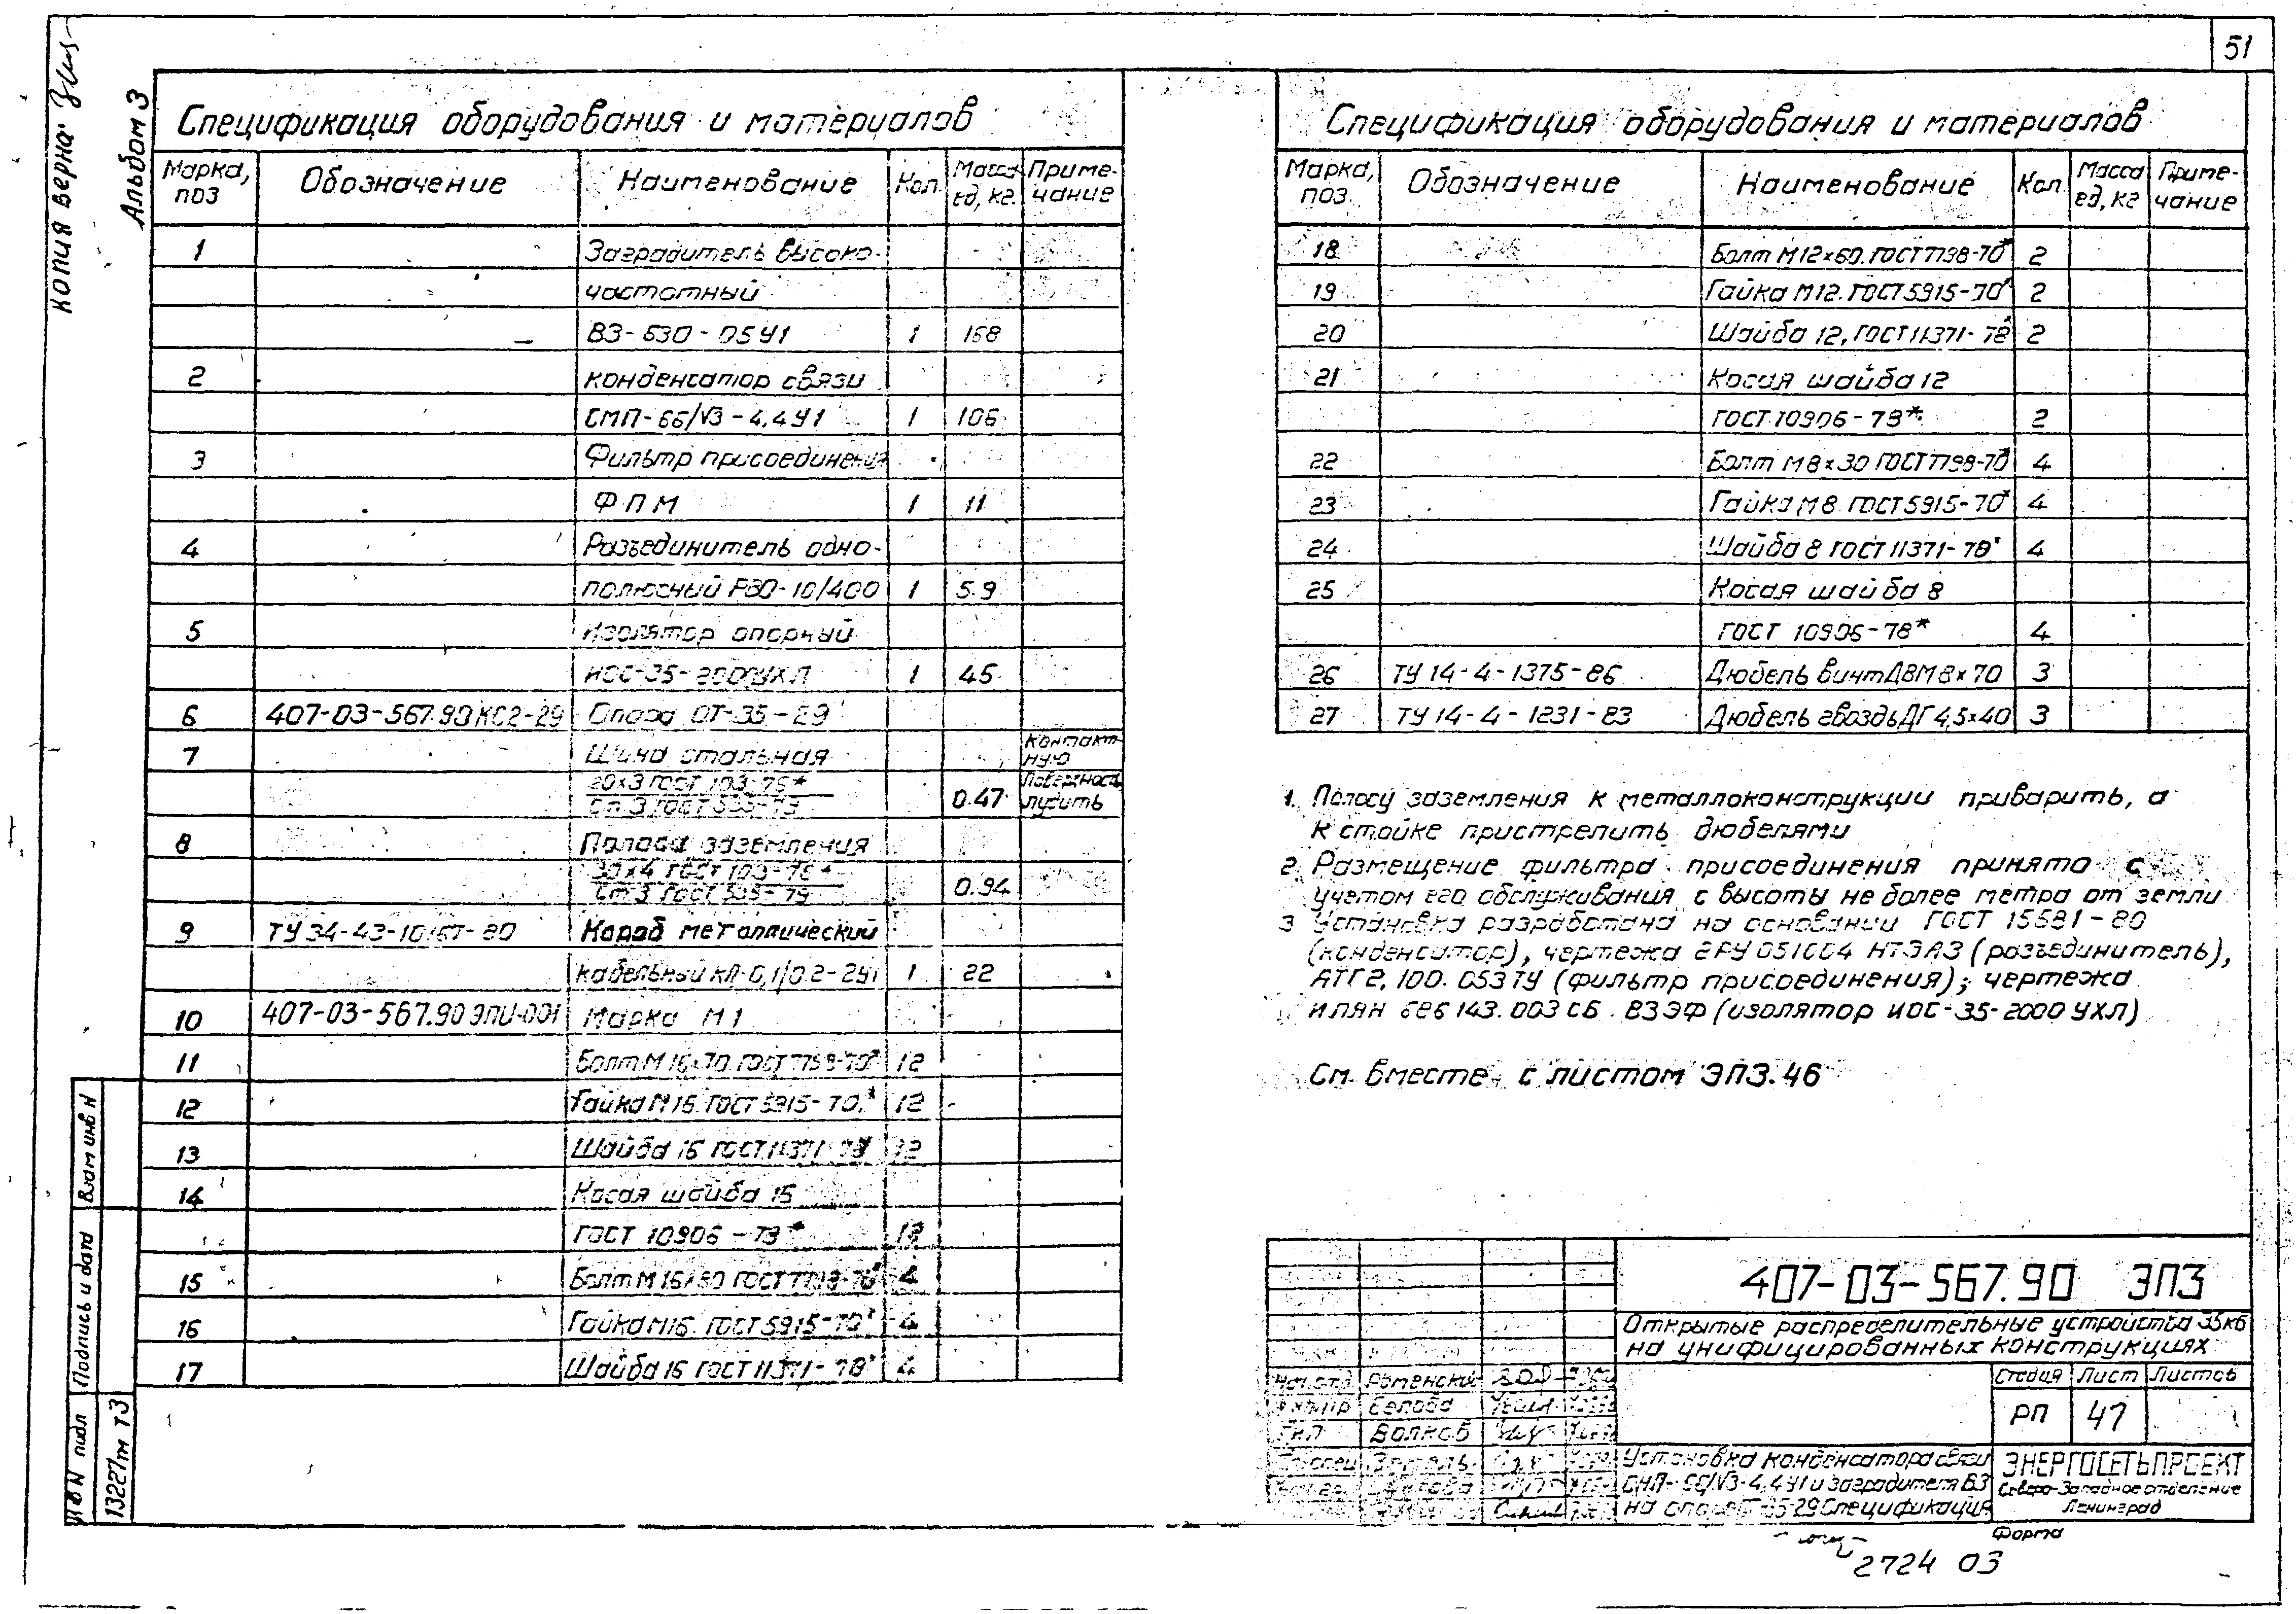 51
копия верна:
Альбом 3
Спецификация оборудования и материалов
Марка, поз Обозначение Наименование Кол. Масса ед, кг. Приме-чание
1 Заградитель высоко-
частотный
ВЗ-630-05У1 1 168
2 конденсатор связи
СМП-66/√3-4,4У1 1 106
3 Фильтр присоединения
ФПМ 1 11
4 Разъединитель одно-
полюсный РВО-10/400 1 5.9
5 Изолятор опорный
ИОС-35-2000УХЛ 1 45
6 407-03-567.90КС2-29 Опора ОТ-35-29
7 Шина стальная Контакт-ную
20х3 ГОСТ 103-76* поверхность
Ст 3 ГОСТ 535-79 0.47 лудить
8 Полоса заземления
30х4 ГОСТ 103-76*
Ст 3 ГОСТ 535-79 0.94
9 ТУ34-43-10167-80 Короб металлический
кабельный КП-0,1/0.2-2У1 1 22
10 407-03-567.90 ЭПИ-001 Марка М1
11 Болт М16х70.ГОСТ7798-70* 12
12 Гайка М16.ГОСТ5915-70.* 12
13 Шайба 16 ГОСТ.11371-78* 12
14 Косая шайба 16
ГОСТ 10906-78* 12
15 Болт М16х80 ГОСТ7798-70* 4
16 Гайка М16. ГОСТ5915-70* 4
17 Шайба 16 ГОСТ 11371-78* 4
Спецификация оборудования и материалов
Марка, поз. Обозначение Наименование Кол. Масса ед, кг Приме-чание
18 Болт М12х60.ГОСТ7798-70* 2
19 Гайка М12.ГОСТ5915-70* 2
20 Шайба 12.ГОСТ11371-78* 2
21 Косая шайба 12
ГОСТ.10906-78* 2
22 Болт М8х30 ГОСТ7798-70* 4
23 Гайка М8.ГОСТ5915-70* 4
24 Шайба 8 ГОСТ11371-78* 4
25 Косая шайба 8
ГОСТ 10906-78* 4
26 ТУ14-4-1375-86 Дюбель винт ДВМ8х70 3
27 ТУ14-4-1231-83 Дюбель гвоздь ДГ4,5х40 3
1. Полосу заземления к металлоконструкции приварить, а
к стойке пристрелить дюбелями
2. Размещение фильтра присоединения принято с
учетом его обслуживания с высоты не более метра от земли
3 Установка разработана на основании ГОСТ 15581-80
(конденсатор), чертежа 2РУ051004 НТЭАЗ (разъединитель),
АТГ2.100.053ТУ (фильтр присоединения); чертежа
ИЛЯН 686143.003СБ ВЗЭФ (изолятор ИОС-35-2000УХЛ)
См. вместе с листом ЭПЗ.46
407-03-567.90 ЭПЗ
Открытые распределительные устройства 35кВ
на унифицированных конструкциях
Стадия Лист Листов
РП 47
Нач.отд. Роменский
Белова
ГИП Волков
Установка конденсатора связи
СМП-66/√3-4,4У1 и заградителя ВЗ
на опоре ОТ-35-29 Спецификация
ЭНЕРГОСЕТЬПРОЕКТ
Северо-Западное отделение
Ленинград
Форма
2724 03
Взам инв N
Подпись и дата
Инв N подл
13227тм т3